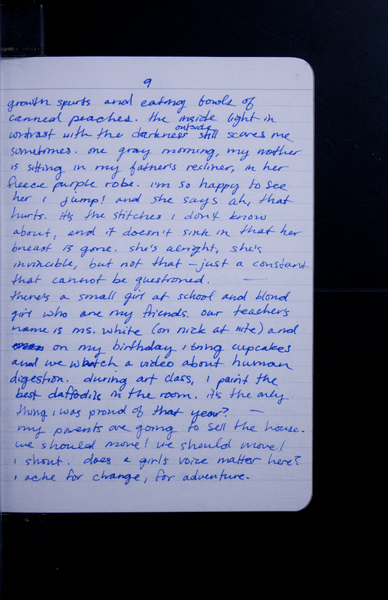 9
growth spurts and eating bowls of
canned peaches. the inside light in
contrast with the darkness outside still scares me
sometimes. one gray morning, my mother
is sitting in my father's recliner, in her
fleece purple robe. i'm so happy to see
her i jump! and she says ah, that
hurts. it's the stitches i don't know
about, and it doesn't sink in that her
breast is gone. she's alright, she's
invincible, but not that – just a constant
that cannot be questioned. —
there's a small girl at school and blond
girl who are my friends. our teachers
name is ms. white (on nick at nite) and
on my birthday i bring cupcakes
and we watch a video about human
digestion. during art class, i paint the
best daffodils in the room. it's the only
thing i was proud of that year? —
my parents are going to sell the house.
we should move! we should move!
i shout. does a girl's voice matter here?
i ache for change, for adventure.